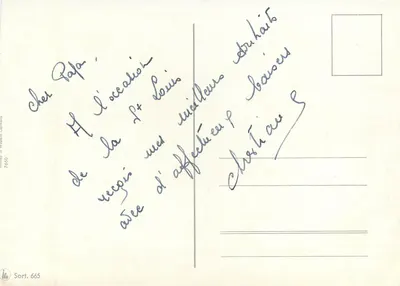 cher Papa,
A l'occasion
de la St Louis
reçois mes meilleurs souhaits
avec d'affectueux baisers
Christian
Sort. 665